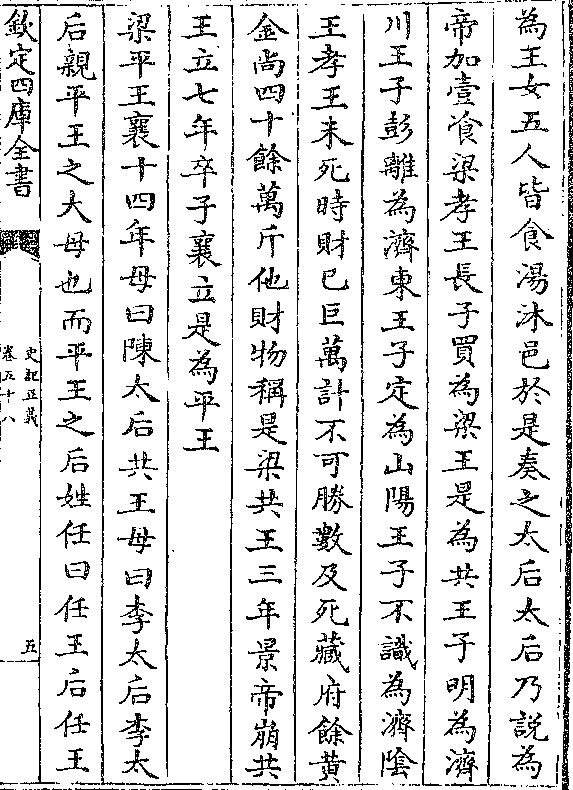 為王女五人皆食湯沐邑於是奏之太后太后乃說為
帝加壹飡梁孝王長子買為梁王是為共王子明為濟
川王子彭離為濟東王子定為山陽王子不識為濟隂
王孝王未死時財已巨萬計不可勝數及死藏府餘黄
金尚四十餘萬斤他財物稱是梁共王三年景帝崩共
王立七年卒子襄立是為平王
梁平王襄十四年母曰陳太后共王母曰李太后李太
后親平王之大母也而平王之后姓任曰任王后任王
欽定四庫全書
史記正義
卷五十八
五